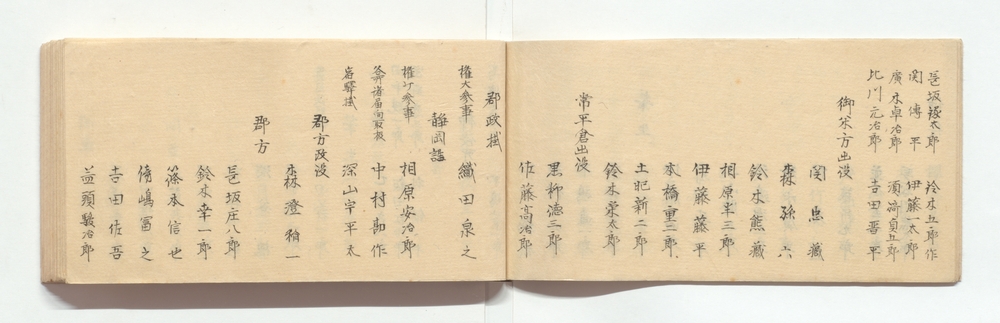 邑坂録太郎　鈴木五郎作
関傳平　伊藤一太郎
廣木卓冶郎　須崎貞五郎
比川元冶郎　吉田晋平
御金方出役
関忠蔵
森孫六
鈴木熊蔵
相原半三郎
伊藤藤平
本橋重三郎
土肥新二郎
鈴木栄太郎
常平倉出役
黒柳徳三郎
佐藤高冶郎
郡政掛
権大参事　織田泉之
静岡詰
権少参事　相原安冶郎
諸届向取扱　中村勘作
宿驛掛　深山宇平太
郡方改役
森澄脩一
郡方
邑坂庄八郎
鈴木幸一郎
篠本信也
嶋冨之
吉田佐吾
益頭駿冶郎